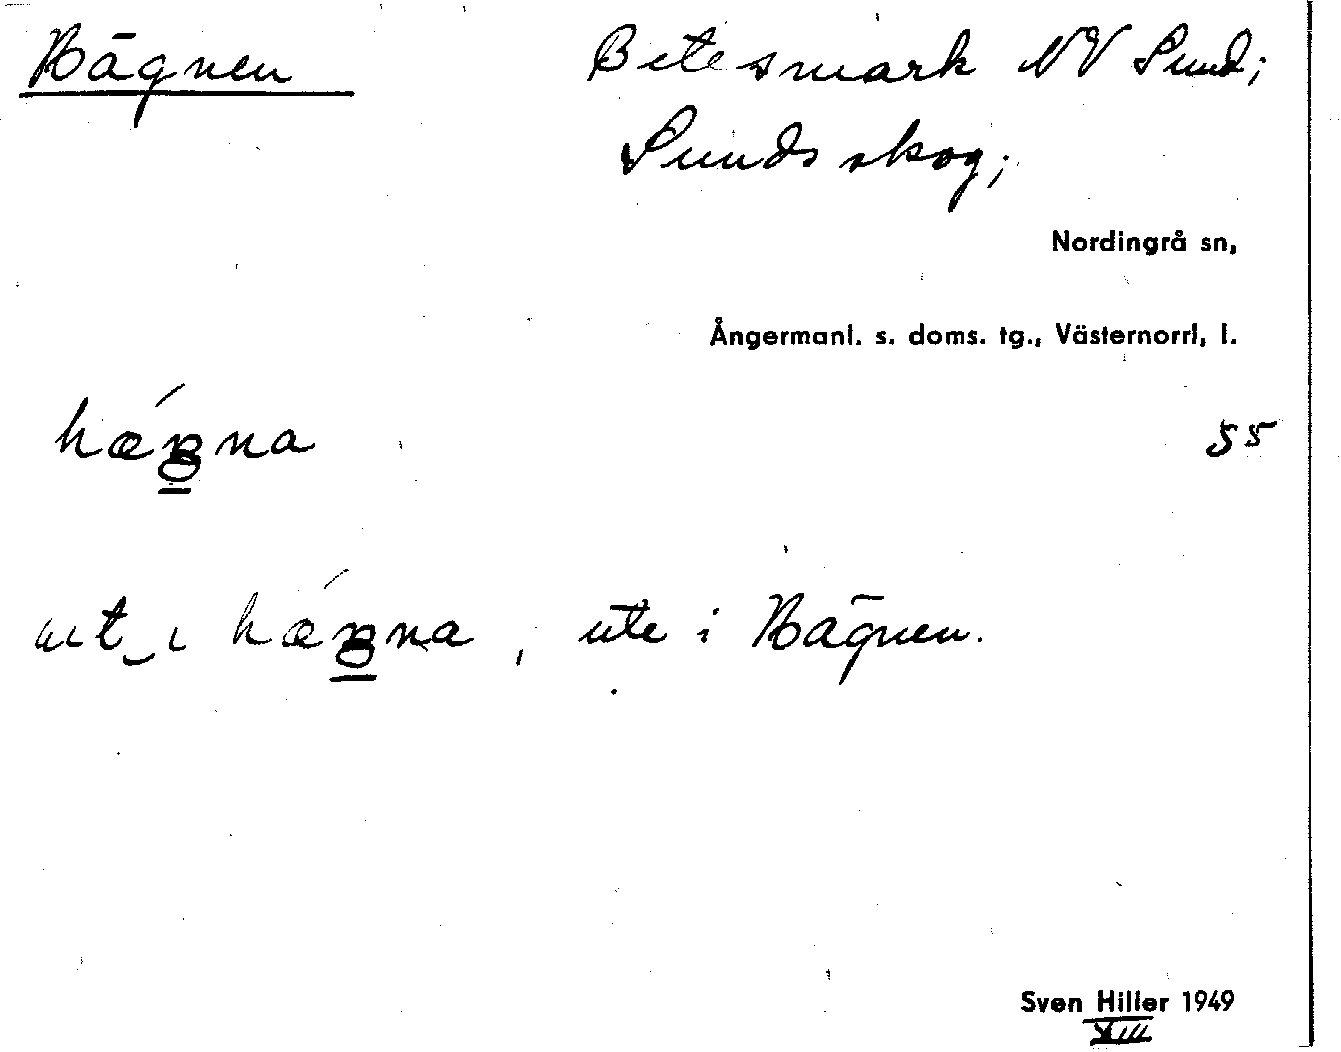 Hägnen
Betesmark NV Sund;
Sunds skog;
Nordingrå sn,
Ångermanl. s. doms. tg., Västernorrl, l.
55
ute i Hägnen.
Sven Hiller 1949
XIII